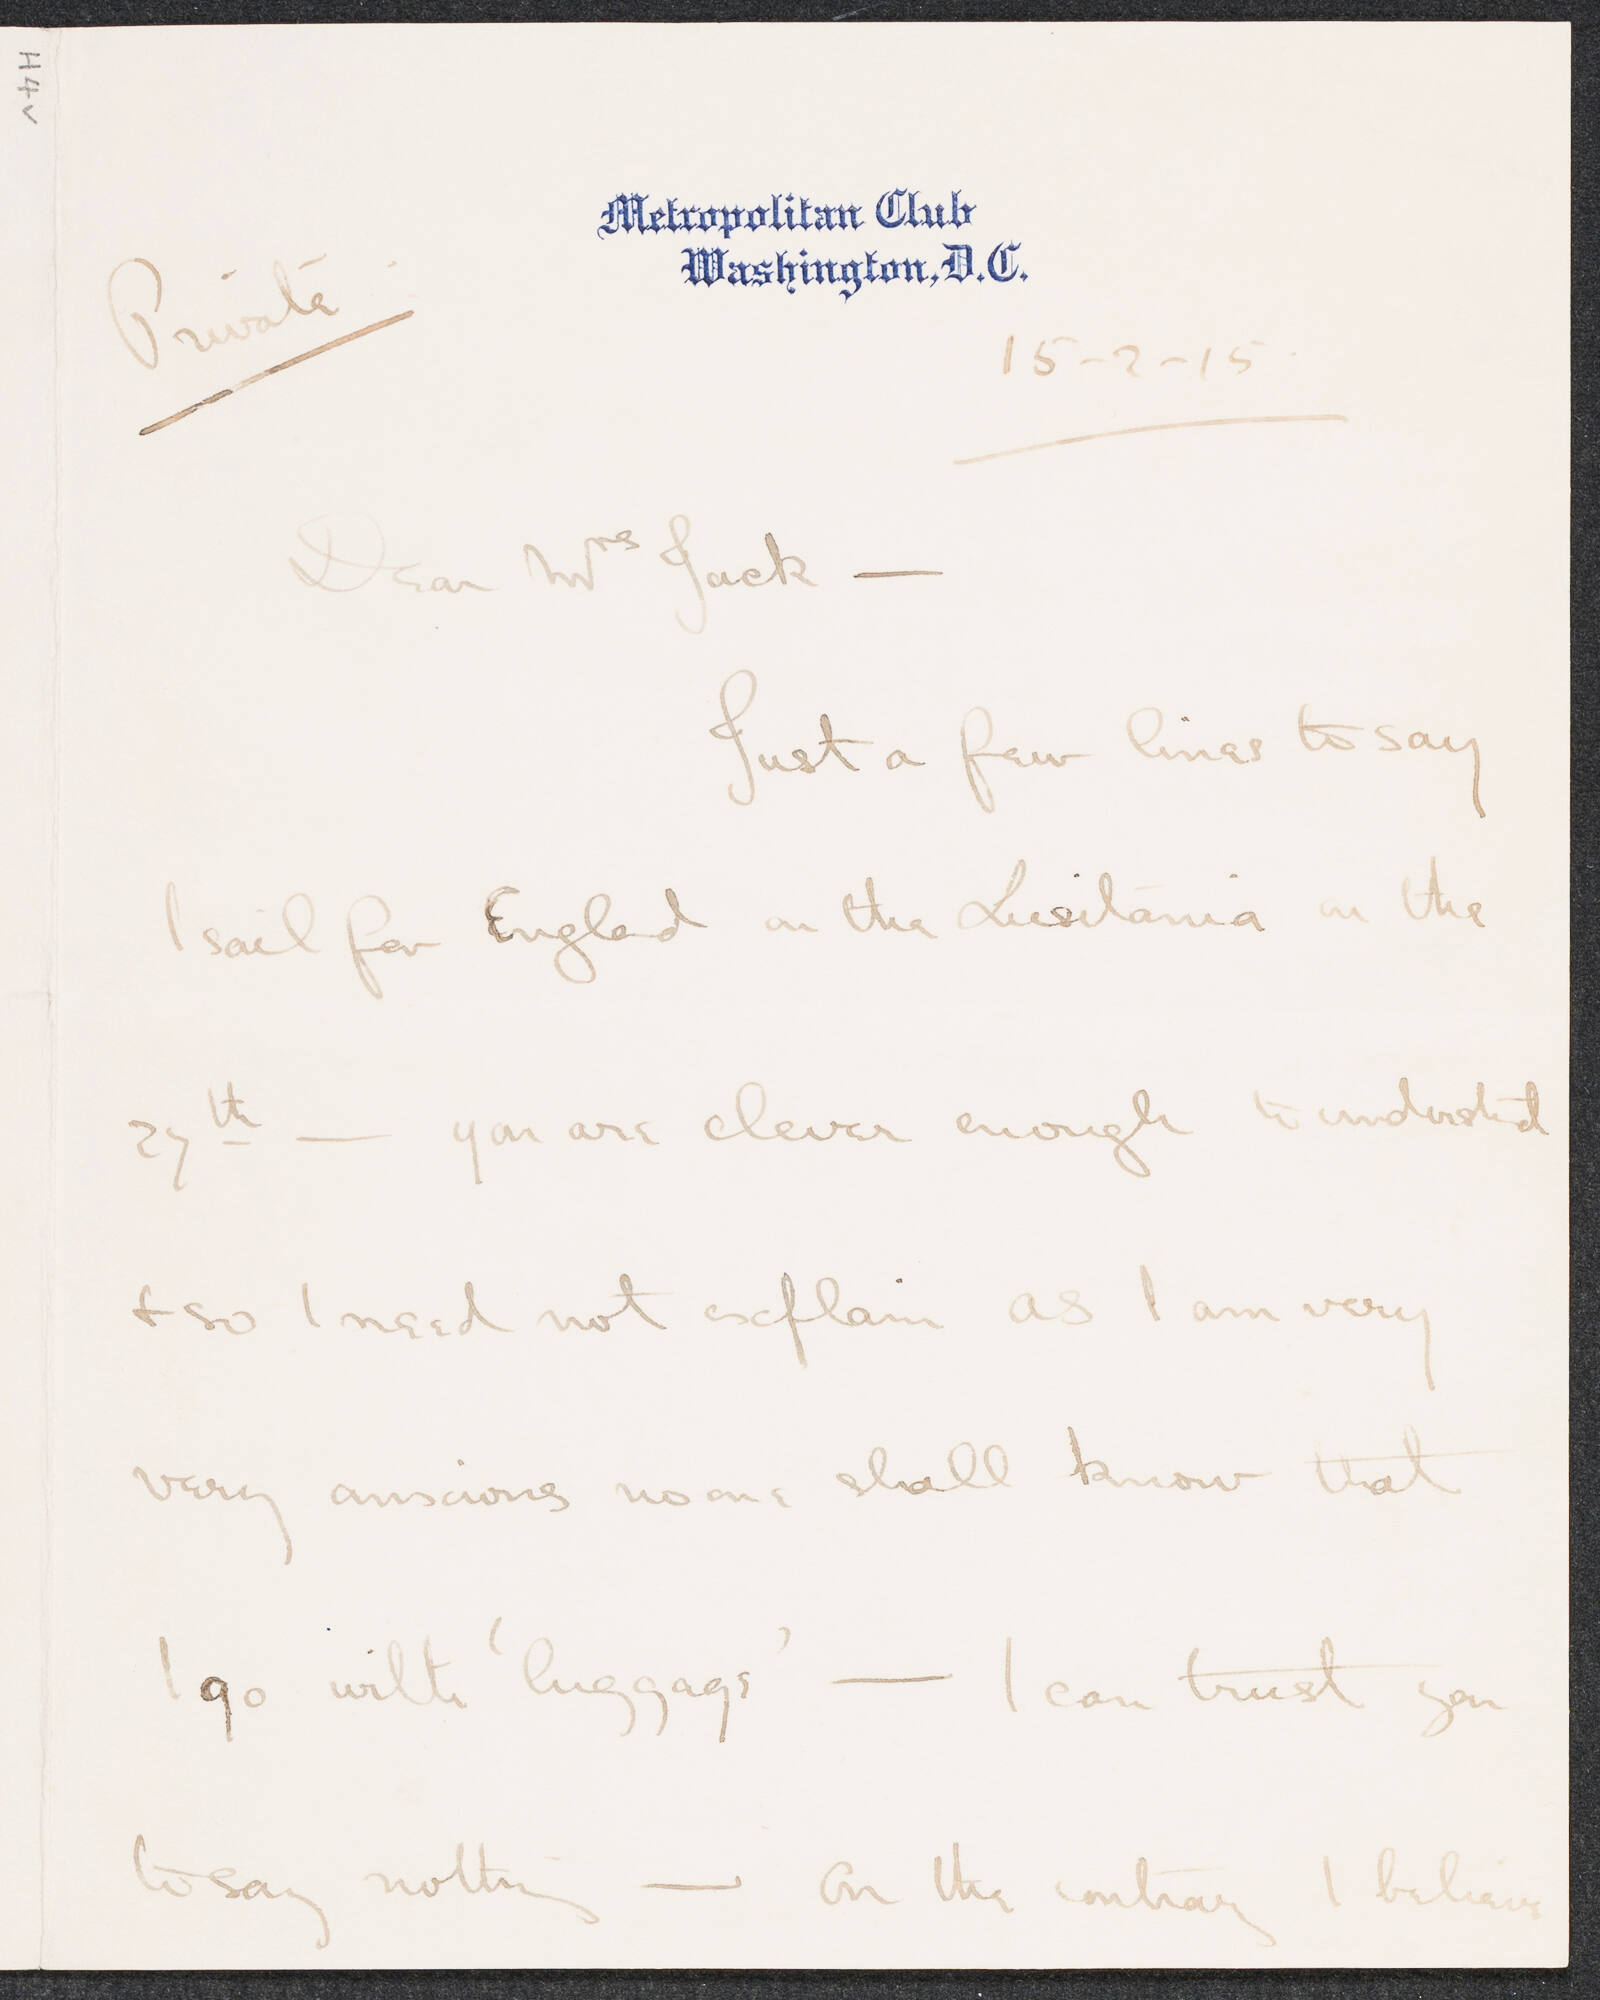 H4v
Metropolitan Club
Washington, D.C.
Private
15-2-15
Dear Mrs Jack —
Just a few lines to say
I sail for England on the Lusitania on the
27th — you are clever enough to understand
+ so I need not explain as I am very
very anxious no one shall know that
I go with 'luggage' — I can trust you
to say nothing — On the contrary I believe